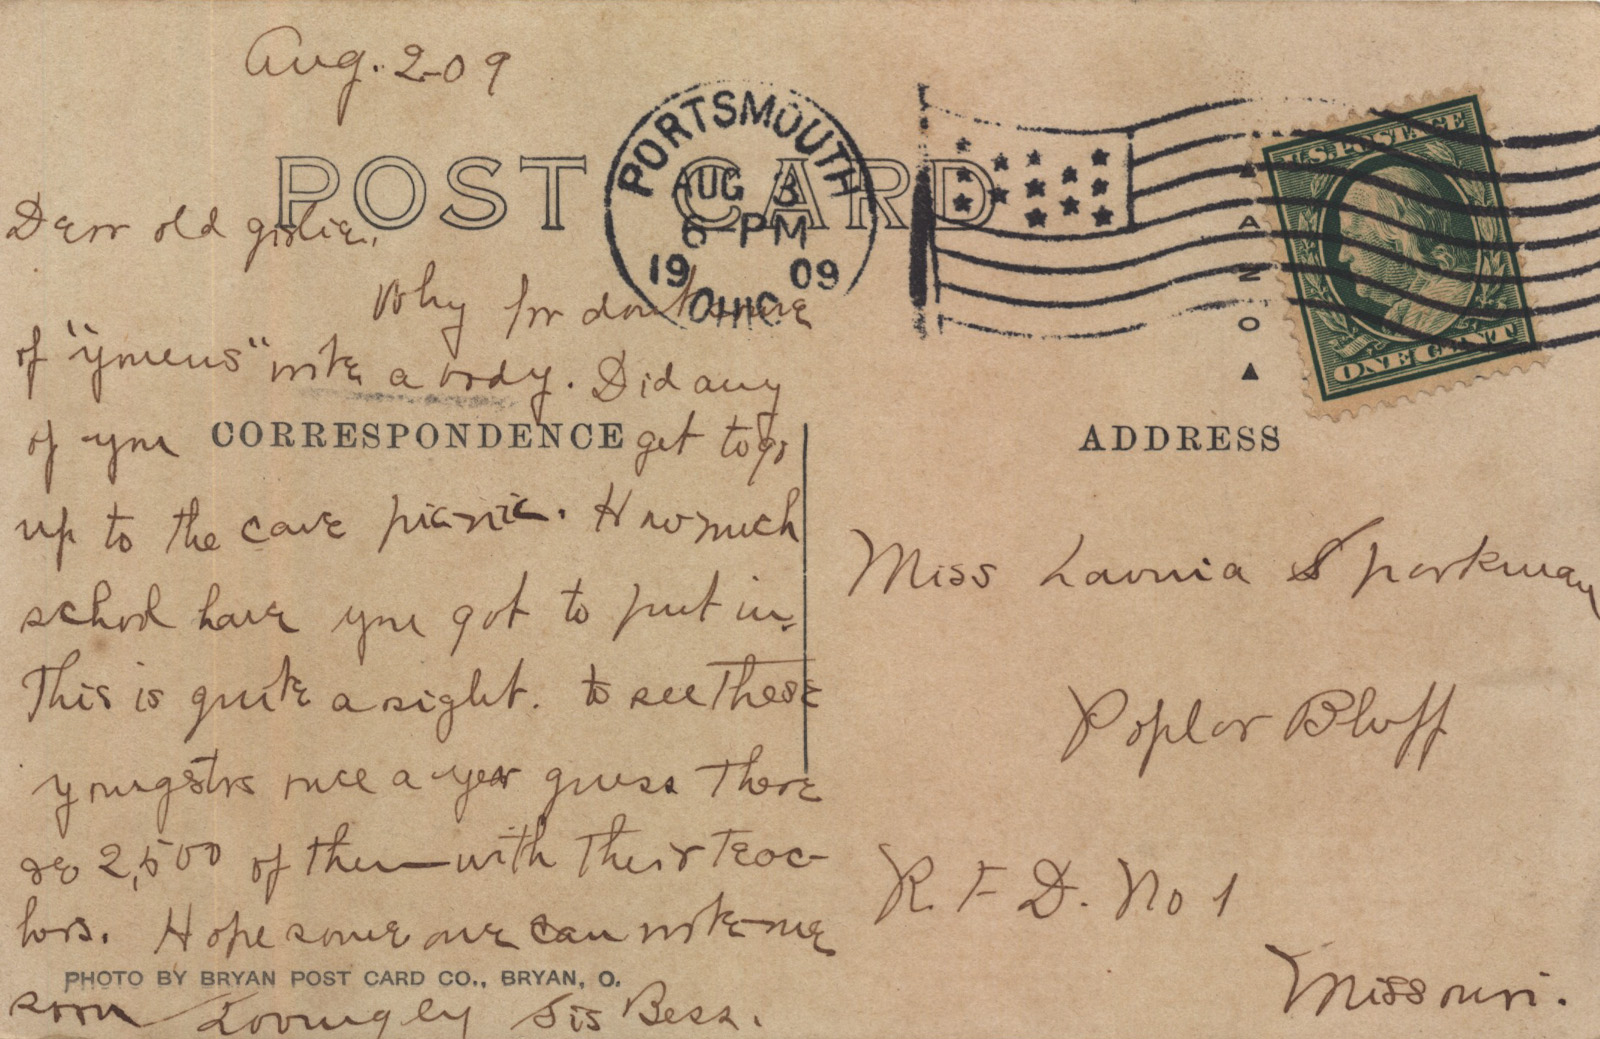 Aug. 2-09
POST CARD
PORTSMOUTH
AUG 3
6-PM
1909
OHIO
U.S. POSTAGE
ONE CENT
AZO
Dear old girlie,
Why for don't some
of "youens" write a body. Did any
of you get to go
CORRESPONDENCE
up to the cave picnic. How much
school have you got to put in.
This is quite a sight. to see these
youngstrs once a year guess there
are 2,500 of them with their teac-
hers. Hope some one can write me
soon Lovingly Sis Bess.
PHOTO BY BRYAN POST CARD CO., BRYAN, O.
ADDRESS
Miss Lavnia Sparkman
Poplar Bluff
R. F. D. No 1
Missouri.